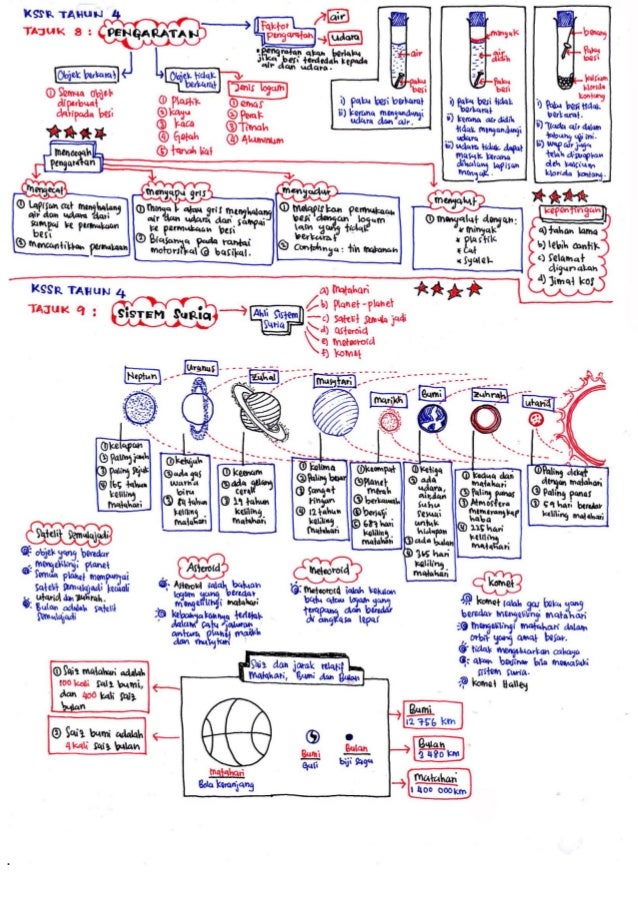 KSSR TAHUN 4
TAJUK 8 :
PENGARATAN
Faktor
pengaratan
air
udara
• pengaratan akan berlaku
jika besi terdedah kepada
air dan udara.
Objek berkarat
① Semua objek
diperbuat
daripada besi
Objek tidak
berkarat
① Plastik
② kayu
③ kaca
④ Getah
⑤ tanah liat
Jenis logam
① emas
② Perak
③ Timah
④ Aluminium
air
paku
besi
i) paku besi berkarat
ii) kerana mengandungi
udara dan air.
minyak
air
didih
Paku
besi
i) paku besi tidak
berkarat
ii) kerana air didih
tidak mengandungi
udara
iii) udara tidak dapat
masuk kerana
dihalang lapisan
minyak.
benang
Paku
besi
kalsium
klorida
kontang
i) Paku besi tidak
berkarat.
ii) Tiada air dalam
tabung uji ini.
iii) wap air juga
telah diserapkan
oleh kalsium
klorida kontang.
Mencegah
pengaratan
Mengecat
① Lapisan cat menghalang
air dan udara dari
sampai ke permukaan
besi
② mencantikkan permukaan
Menyapu gris
① Minyak atau gris menghalang
air dan udara dari sampai
ke permukaan besi
② Biasanya pada rantai
motorsikal @ basikal.
Menyadur
① Melapiskan permukaan
besi dengan logam
lain yang tidak
berkarat
② Contohnya : tin makanan
menyalut
① menyalut dengan:
* minyak
* plastik
* cat
* syelek
kepentingan
a) tahan lama
b) lebih cantik
c) selamat
digunakan
d) Jimat kos
KSSR TAHUN 4
TAJUK 9 :
SISTEM SURIA
Ahli Sistem
Suria
a) Matahari
b) planet-planet
c) satelit semula jadi
d) asteroid
e) meteoroid
f) komet
Neptun
Uranus
Zuhal
Musytari
marikh
Bumi
zuhrah
utarid
① kelapan
② Paling jauh
③ Paling sejuk
④ 165 tahun
keliling
matahari
① ketujuh
② ada gas
warna
biru
③ 84 tahun
keliling
matahari
① keenam
② ada gelang
cerah
③ 29 tahun
keliling
matahari
① kelima
② Paling besar
③ sangat
ringan
④ 12 tahun
keliling
matahari
① keempat
② Planet
merah
③ berkawah
④ berais
⑤ 687 hari
keliling
matahari
① ketiga
② ada
udara,
air dan
suhu
sesuai
untuk
hidupan
③ ada bulan
④ 365 hari
keliling
matahari
① kedua dari
matahari
② Paling panas
③ Atmosfera
memerangkap
haba
④ 225 hari
keliling
matahari
① Paling dekat
dengan matahari
② Paling panas
③ 59 hari beredar
keliling matahari
Satelit Semulajadi
objek yang beredar
mengelilingi planet
semua planet mempunyai
satelit semulajadi kecuali
utarid dan zuhrah.
Bulan adalah satelit
semulajadi
Asteroid
Asteroid ialah batuan
logam yang beredar
mengelilingi matahari
kebanyakannya terletak
dalam satu jaluran
antara planet marikh
dan musytari
Meteoroid
Meteoroid ialah ketulan
batu atau logam yang
terapung dan beredar
di angkasa lepas
Komet
komet ialah gas beku yang
beredar mengelilingi matahari
mengelilingi matahari dalam
orbit yang amat besar.
tidak mengeluarkan cahaya
akan bersinar bila memasuki
sistem suria.
komet Halley
Saiz dan jarak relatif
Matahari, Bumi dan Bulan
① Saiz matahari adalah
100 kali saiz bumi,
dan 400 kali saiz
bulan
② Saiz bumi adalah
4 kali saiz bulan
matahari
Bola keranjang
Bumi
Guli
Bulan
biji sagu
Bumi
12 756 km
Bulan
3 480 km
Matahari
1 400 000 km